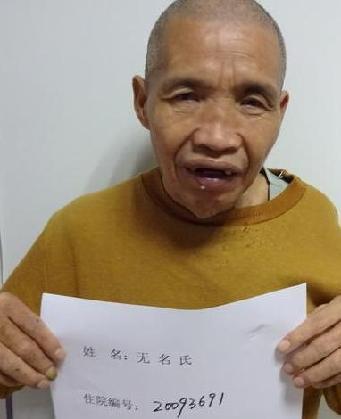 姓 名：无名氏
住院编号：20093691